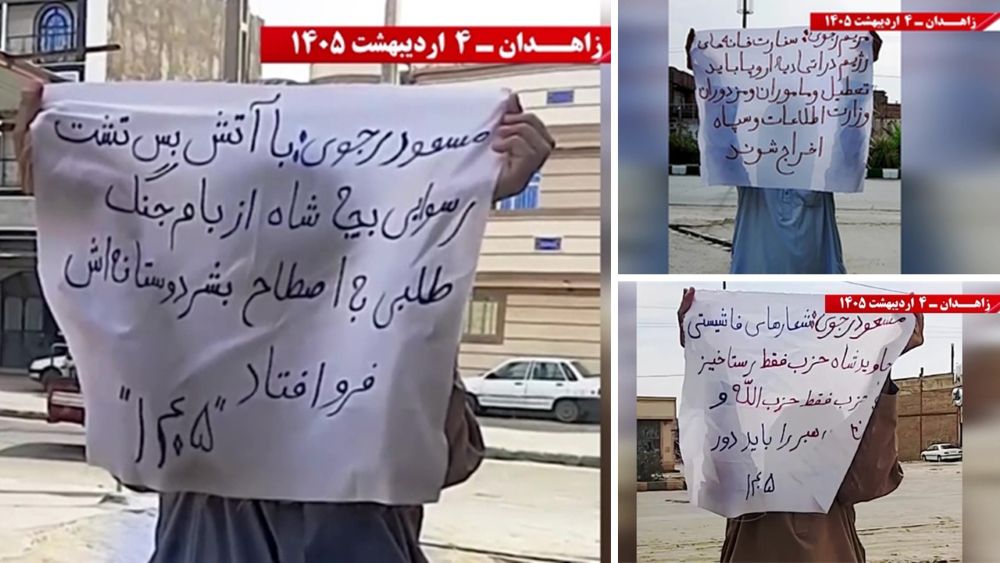 زاهدان - ۴ اردیبهشت ۱۴۰۵
مسعود رجوی: با آتش بس تشت
رسوایی بچه شاه از بام جنگ
طلبی به اصطلاح بشردوستانه‌اش
فرو افتاد
"۵م۱"
زاهدان - ۴ اردیبهشت ۱۴۰۵
مریم رجوی: سفارت خانه‌های
رژیم در اتحادیه اروپا باید
تعطیل و ماموران و مزدوران
وزارت اطلاعات و سپاه
اخراج شوند
زاهدان - ۴ اردیبهشت ۱۴۰۵
مسعود رجوی: شعارهای فاشیستی
جاوید شاه حزب فقط رستاخیز
حزب فقط حزب الله و
رهبر را باید دور
۵م۱